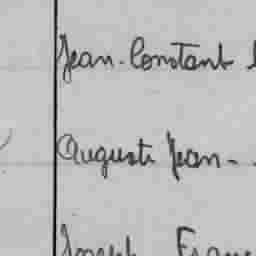 Jean-Constant
Auguste Jean-
Joseph Franç